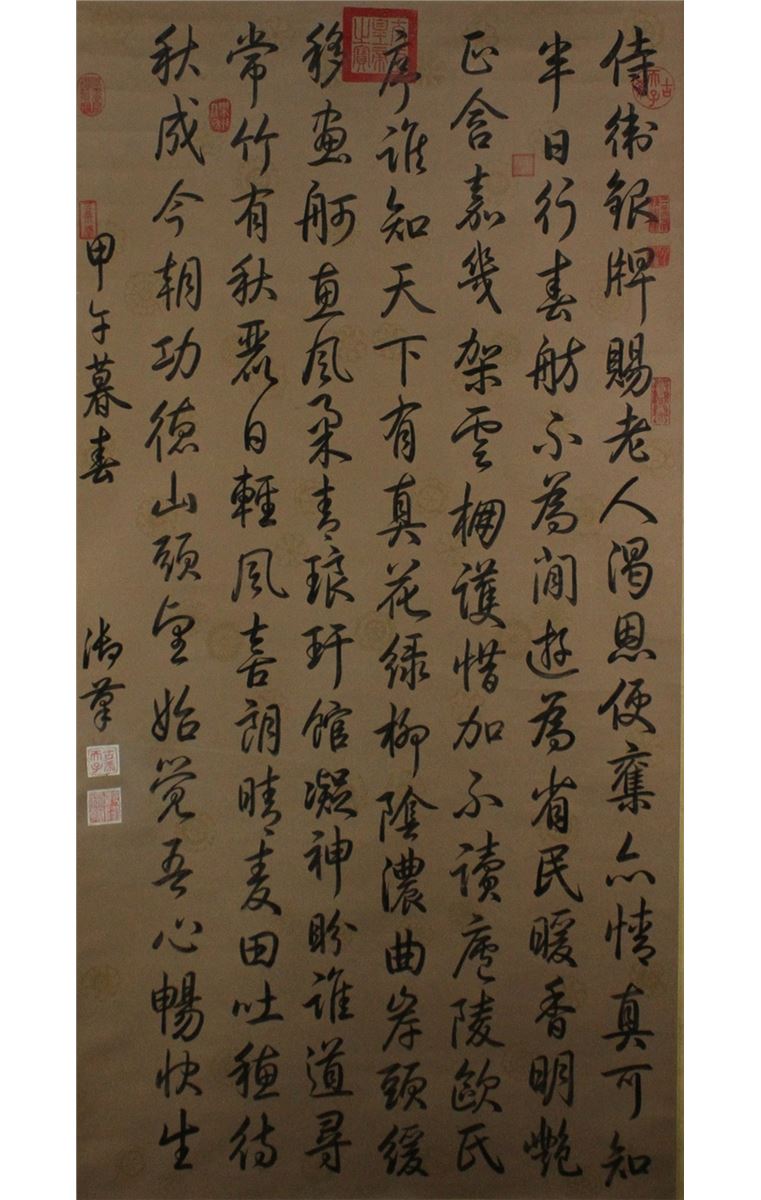 侍衛銀牌賜老人渴恩便奪亦情真可知
半日行春舫不為閒遊為省民暖香明艷
正含嘉幾架雲棚護惜加不讀廬陵歐氏
序誰知天下有真花綠柳陰濃曲岸頭緩
移畫舸惠風柔青琅玕館凝神盼誰道尋
常竹有秋麗日輕風喜朗晴麦田吐穗待
秋成今朝功德山頭望始覺吾心暢快生
甲午暮春
御筆
古希天子